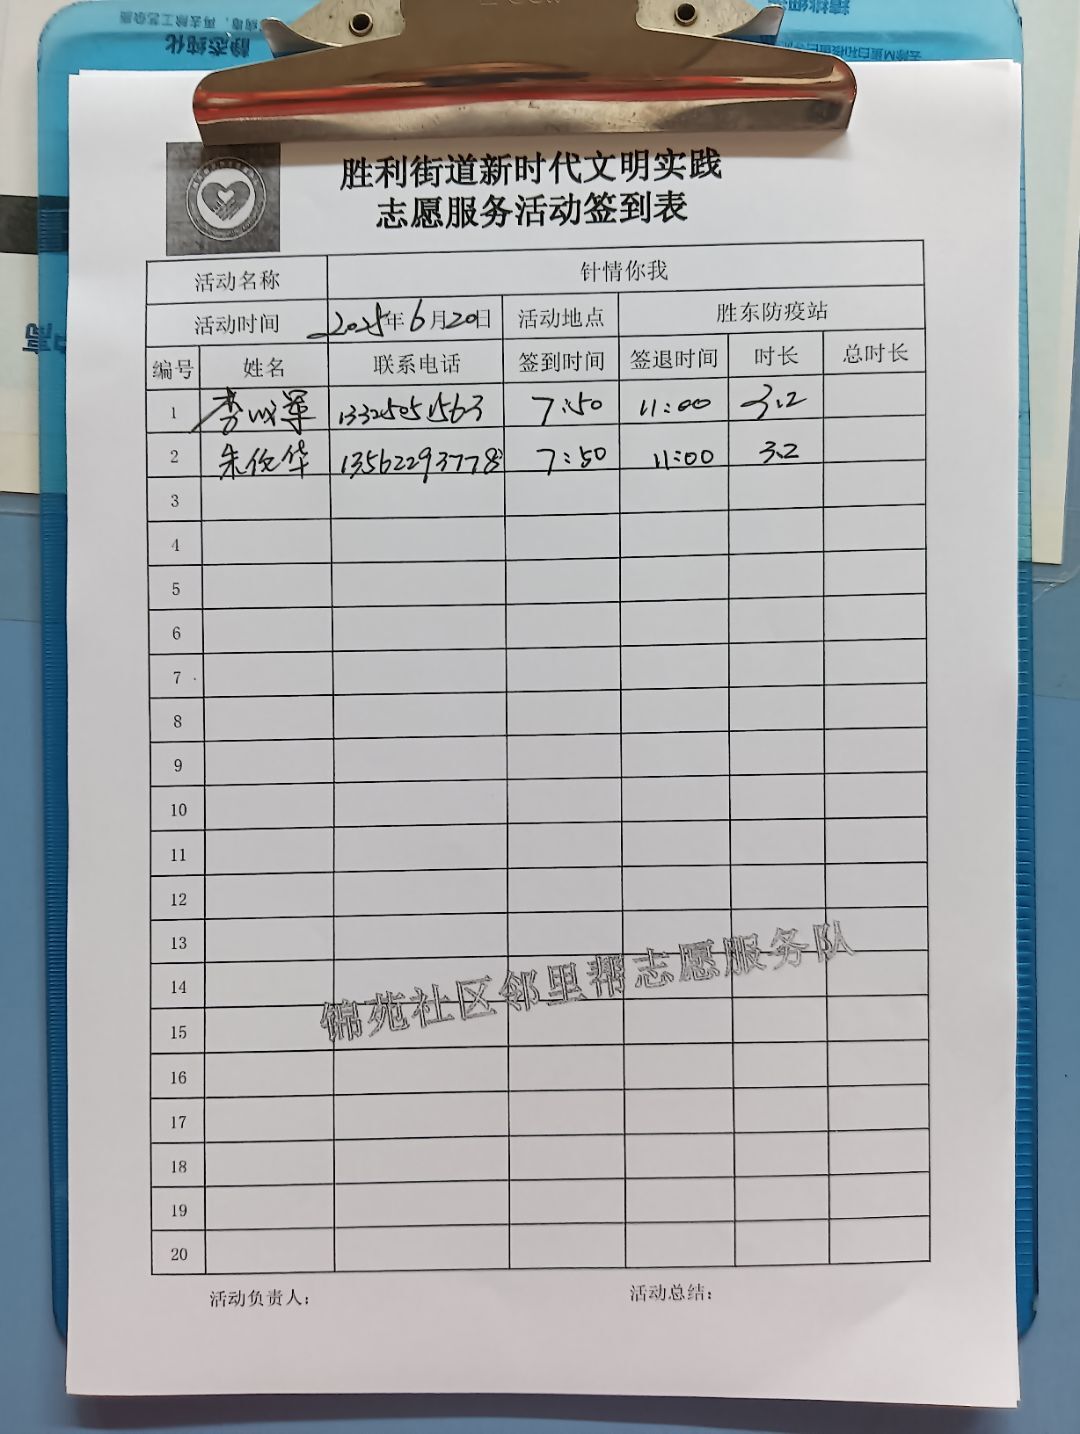 静态纯化
胜利街道新时代文明实践
志愿服务活动签到表
活动名称 针情你我
活动时间 2025年6月20日 活动地点 胜东防疫站
编号 姓名 联系电话 签到时间 签退时间 时长 总时长
1 李 军 13325051563 7:50 11:00 3.2
2 朱 华 13562293778 7:50 11:00 3.2
3
4
5
6
7
8
9
10
11
12
13
14
15
16
17
18
19
20
锦苑社区邻里帮志愿服务队
活动负责人： 活动总结：